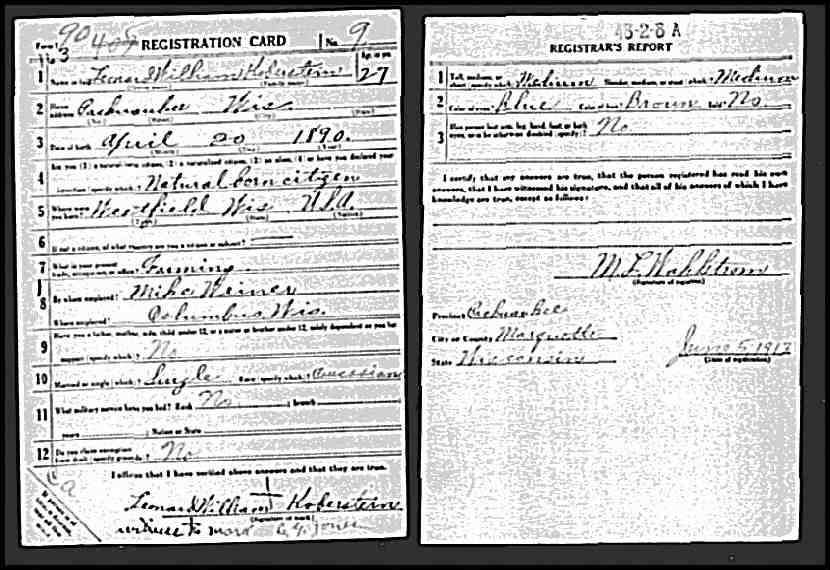 Form 1 90 405 REGISTRATION CARD No. 9
3 Age, in yrs.
1 Name in full Leonard William Koberstein 27
(Family name)
2 Home address Packwaukee Wis
(No.) (Street) (City) (State)
3 Date of birth April 20 1890.
(Month) (Day) (Year)
4 Are you (1) a natural-born citizen, (2) a naturalized citizen, (3) an alien, (4) or have you declared your
intention (specify which)? Natural born citizen
5 Where were you born? Westfield Wis U.S.A.
(Town) (State) (Nation)
6 If not a citizen, of what country are you a citizen or subject?
7 What is your present trade, occupation, or office? Farming
8 By whom employed? Mike Weiner
Where employed? Columbus Wis.
9 Have you a father, mother, wife, child under 12, or a sister or brother under 12, solely dependent on you for
support (specify which)? No
10 Married or single (which)? Single Race (specify which)? Caucasian
11 What military service have you had? Rank No ; branch
years ; Nation or State
12 Do you claim exemption from draft (specify grounds)? No
I affirm that I have verified above answers and that they are true.
Leonard William Koberstein
(Signature or mark)
witness to mark
43-2-8 A
REGISTRAR'S REPORT
1 Tall, medium, or short (specify which)? Medium Slender, medium, or stout (which)? Medium
2 Color of eyes? Blue Color of hair? Brown Bald? No
3 Has person lost arm, leg, hand, foot, or both eyes, or is he otherwise disabled (specify)? No
I certify that my answers are true, that the person registered has read his own
answers, that I have witnessed his signature, and that all of his answers of which I have
knowledge are true, except as follows:
M L Wahlstrom
(Signature of registrar)
Precinct Packwaukee
City or County Marquette
State Wisconsin
June 5 1917
(Date of registration)